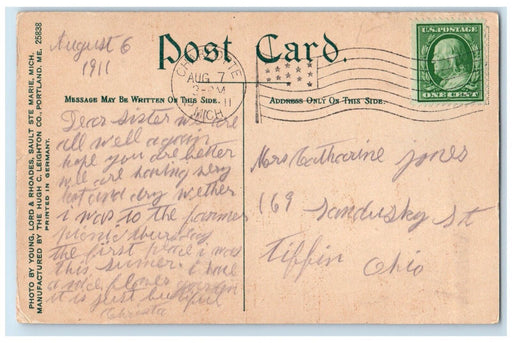 PHOTO BY YOUNG LORD & RHOADES, SAULT STE MARIE, MICH.
MANUFACTURED BY THE HUGH C. LEIGHTON CO. PORTLAND, ME. 25838
PRINTED IN GERMANY.
August 6
1911
Post Card.
AUG 7
MICH
U.S. POSTAGE
ONE CENT
MESSAGE MAY BE WRITTEN ON THIS SIDE.
ADDRESS ONLY ON THIS SIDE.
Dear Sister we are
all well again
hope you are better
we are having very
hot and dry wether
i was to the farmer
picnic thursday
the first place i was
this sumer. i have
a nice flower garden
it is just butiful
Christa
Mrs Catharine Jones
169 Sandusky St
Tiffin Ohio